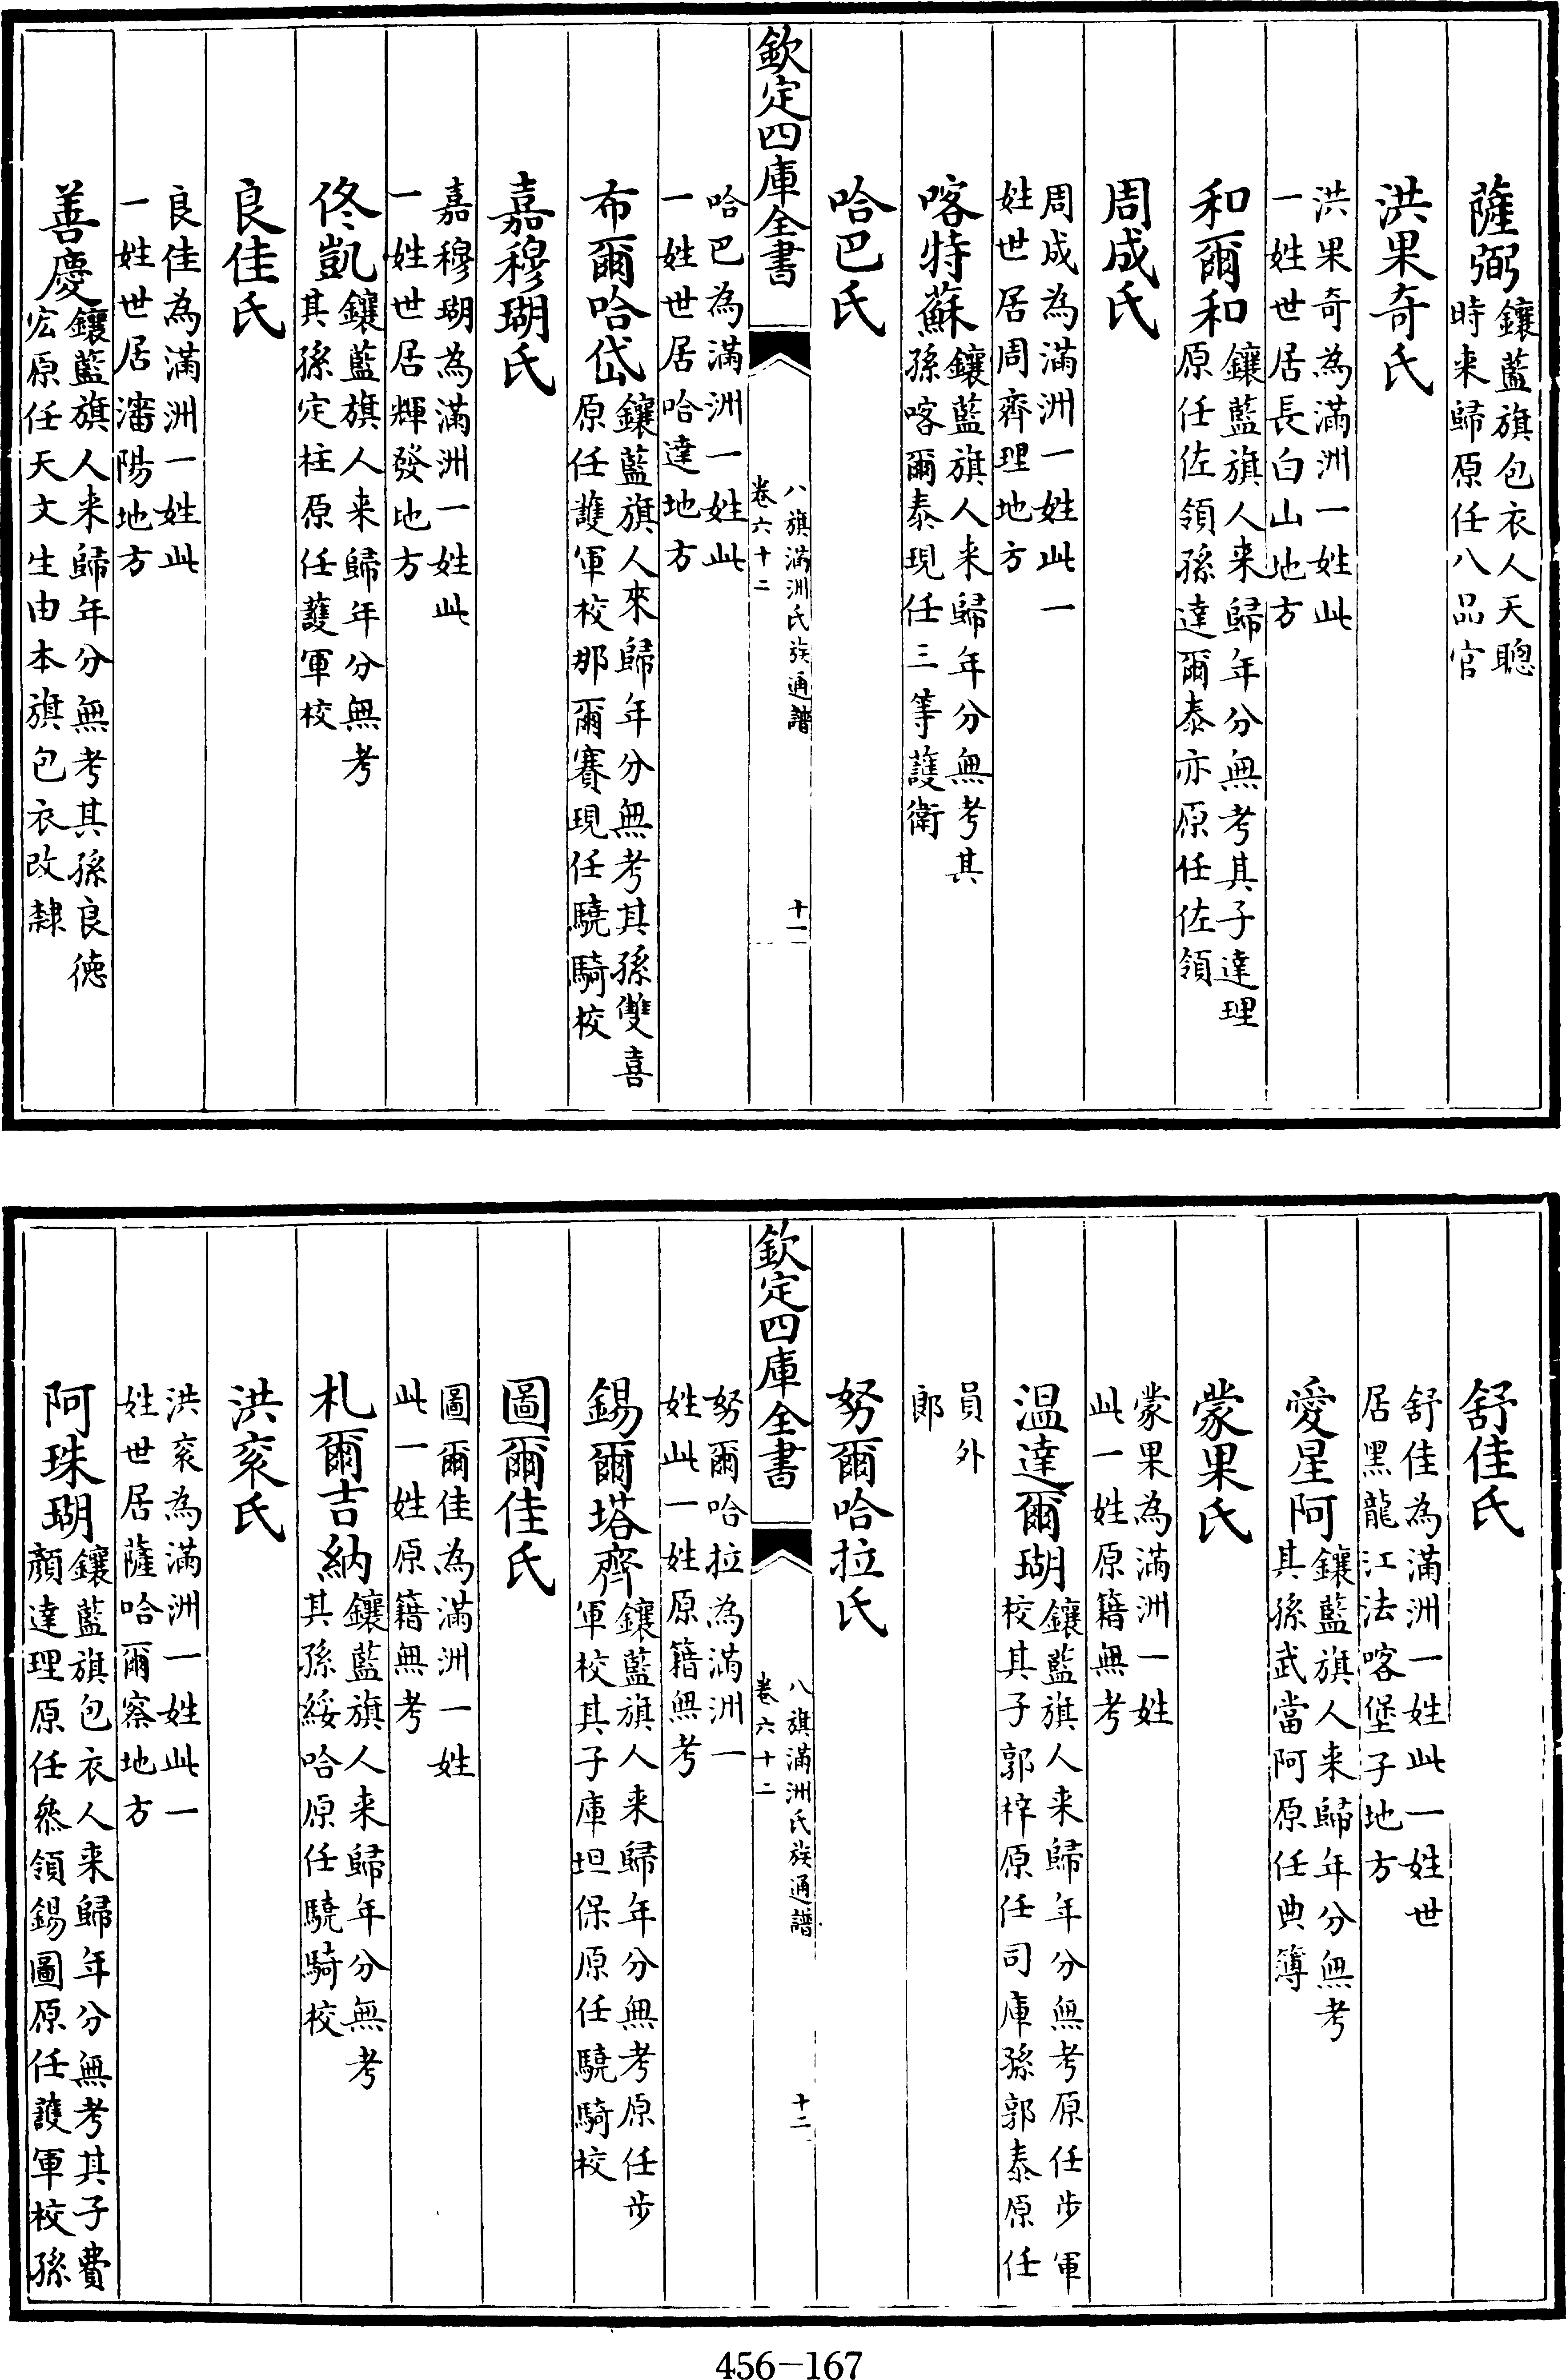 薩弼鑲藍旗包衣人天聰
時来歸原任八品官
洪果奇氏
洪果奇為滿洲一姓此
一姓世居長白山地方
和爾和鑲藍旗人来歸年分無考其子達理
原任佐領孫達爾泰亦原任佐領
周成氏
周成為滿洲一姓此一
姓世居周齊理地方
喀特蘇鑲藍旗人来歸年分無考其
孫喀爾泰現任三等護衛
哈巴氏
欽定四庫全書
八旗滿洲氏族通譜
卷六十二
十一
哈巴為滿洲一姓此
一姓世居哈達地方
布爾哈岱鑲藍旗人來歸年分無考其孫雙喜
原任護軍校那爾賽現任驍騎校
嘉穆瑚氏
嘉穆瑚為滿洲一姓此
一姓世居輝發地方
佟凱鑲藍旗人来歸年分無考
其孫定柱原任護軍校
良佳氏
良佳為滿洲一姓此
一姓世居瀋陽地方
善慶鑲藍旗人来歸年分無考其孫良德
宏原任天文生由本旗包衣改隸
舒佳氏
舒佳為滿洲一姓此一姓世
居黑龍江法喀堡子地方
愛星阿鑲藍旗人来歸年分無考
其孫武當阿原任典簿
蒙果氏
蒙果為滿洲一姓
此一姓原籍無考
温達爾瑚鑲藍旗人来歸年分無考原任步軍
校其子郭梓原任司庫孫郭泰原任
員外
郎
努爾哈拉氏
欽定四庫全書
八旗滿洲氏族通譜
卷六十二
十二
努爾哈拉為滿洲一
姓此一姓原籍無考
錫爾塔齊鑲藍旗人来歸年分無考原任步
軍校其子庫坦保原任驍騎校
圖爾佳氏
圖爾佳為滿洲一姓
此一姓原籍無考
札爾吉納鑲藍旗人来歸年分無考
其孫綏哈原任驍騎校
洪衮氏
洪衮為滿洲一姓此一
姓世居薩哈爾察地方
阿珠瑚鑲藍旗包衣人来歸年分無考其子費
顏達理原任叅領錫圖原任護軍校孫
456-167